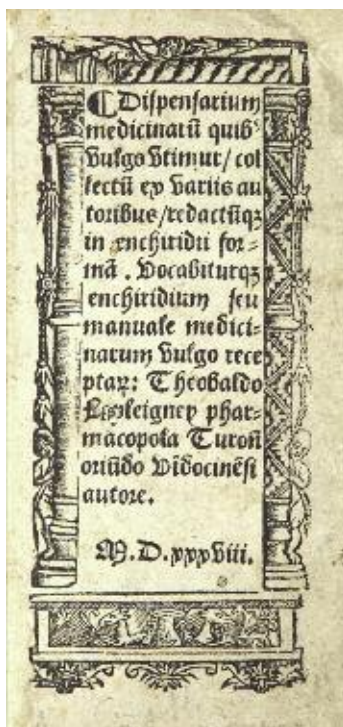 ⸿ Dispensarium
medicinarũ quibꝰ
vulgo vtimur/ col
lectũ ex variis au
toribus/redactũqꝫ
in enchiridii for⸗
mã . Vocabiturqꝫ
enchiridium seu
manuale medici⸗
narum vulgo rece
ptaꝝ: Theobaldo
Lespleigney phar⸗
macopola Turoñ
oriũdo Vĩdocinẽsi
autore.
M.D.xxxviii.